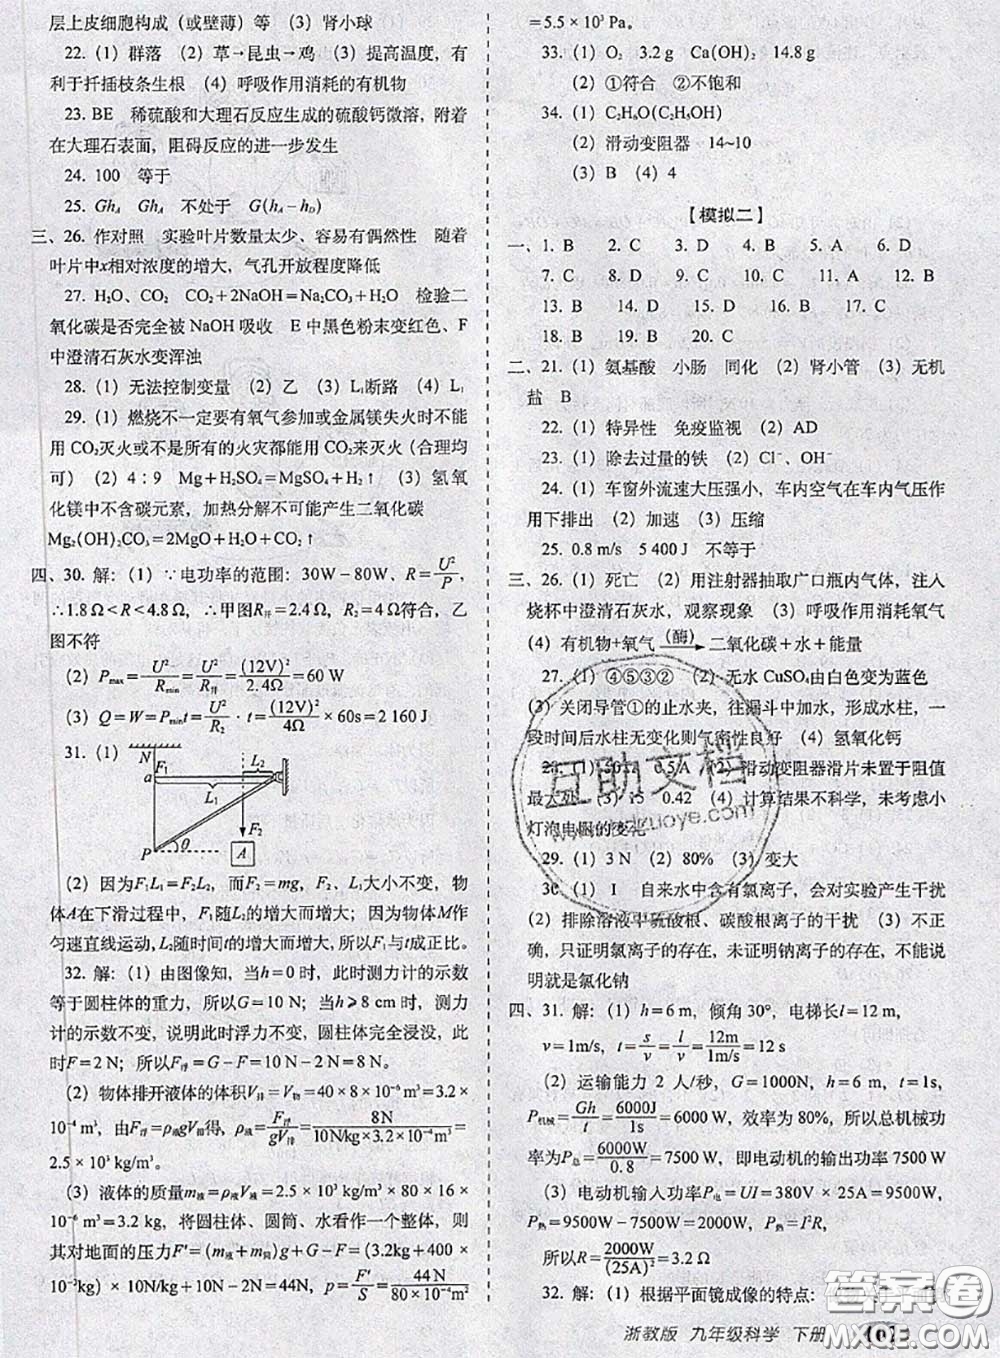 层上皮细胞构成（或壁薄）等 （3）肾小球
22. （1）群落 （2）草→昆虫→鸡 （3）提高温度，有
利于扦插枝条生根 （4）呼吸作用消耗的有机物
23. BE 稀硫酸和大理石反应生成的硫酸钙微溶，附着
在大理石表面，阻碍反应的进一步发生
24. 100 等于
25. Gh_A Gh_A 不处于 G(h_A－h_D)
三、26. 作对照 实验叶片数量太少、容易有偶然性 随着
叶片中x相对浓度的增大，气孔开放程度降低
27. H₂O、CO₂ CO₂＋2NaOH＝Na₂CO₃＋H₂O 检验二
氧化碳是否完全被 NaOH 吸收 E 中黑色粉末变红色、F
中澄清石灰水变浑浊
28. （1）无法控制变量 （2）乙 （3）L₁断路 （4）L₁
29. （1）燃烧不一定要有氧气参加或金属镁失火时不能
用 CO₂灭火或不是所有的火灾都能用 CO₂来灭火（合理均
可） （2）4：9 Mg＋H₂SO₄＝MgSO₄＋H₂↑ （3）氢氧
化镁中不含碳元素，加热分解不可能产生二氧化碳
Mg₂(OH)₂CO₃＝2MgO＋H₂O＋CO₂↑
四、30. 解：（1）∵电功率的范围：30W－80W，R＝U²/P，
∴1.8Ω＜R＜4.8Ω，∴甲图R并＝2.4Ω，R₂＝4Ω符合，乙
图不符
（2）Pmax＝U²/Rmin＝U²/R并＝(12V)²/2.4Ω＝60 W
（3）Q＝W＝Pmin t＝U²/R₂·t＝(12V)²/4Ω×60s＝2 160 J
31. （1）
N
a
L₂
L₁
F₂
P
θ
A
（2）因为F₁L₁＝F₂L₂，而F₂＝mg，L₁大小不变，物
体A在下滑过程中，F₁随L₂的增大而增大；因为物体M作
匀速直线运动，L₂随时间t的增大而增大，所以F₁与t成正比。
32. 解：（1）由图像知，当h＝0时，此时测力计的示数
等于圆柱体的重力，所以G＝10 N；当h≥8 cm时，测力
计的示数不变，说明此时浮力不变，圆柱体完全浸没，此
时F＝2 N；所以F浮＝G－F＝10 N－2 N＝8 N。
（2）物体排开液体的体积V排＝V物＝40×8×10⁻⁶m³＝3.2×
10⁻⁴m³，由F浮＝ρ液gV排得，ρ液＝F浮/gV排＝8N/10N/kg×3.2×10⁻⁴m³＝
2.5×10³ kg/m³。
（3）液体的质量m液＝ρ液V液＝2.5×10³ kg/m³×80×16
×10⁻⁶m³＝3.2 kg，将圆柱体、圆筒、水看作一个整体，则
其对地面的压力F′＝(m液＋m筒)g＋G－F＝(3.2kg＋400×
10⁻²kg)×10N/kg＋10N－2N＝44N，p＝F′/S＝44 N/80×10⁻⁴m²
＝5.5×10³ Pa。
33. （1）O₂ 3.2 g Ca(OH)₂ 14.8 g
（2）①符合 ②不饱和
34. （1）C₂H₆O(C₂H₅OH)
（2）滑动变阻器 14~10
（3）B （4）4
【模拟二】
一、1. B 2. C 3. D 4. B 5. A 6. D
7. C 8. D 9. C 10. C 11. D 12. B
13. B 14. D 15. D 16. B 17. C
18. B 19. B 20. C
二、21. （1）氨基酸 小肠 同化 （2）肾小管 （3）无机
盐 B
22. （1）特异性 免疫监视 （2）AD
23. （1）除去过量的铁 （2）Cl⁻、OH⁻
24. （1）车窗外流速大压强小，车内空气在车内气压作
用下排出 （2）加速 （3）压缩
25. 0.8 m/s 5 400 J 不等于
三、26. （1）死亡 （2）用注射器抽取广口瓶内气体，注入
烧杯中澄清石灰水，观察现象 （3）呼吸作用消耗氧气
（4）有机物＋氧气 （酶）→ 二氧化碳＋水＋能量
27. （1）④⑤③② （2）无水 CuSO₄由白色变为蓝色
（3）关闭导管①的止水夹，往漏斗中加水，形成水柱，一
段时间后水柱无变化则气密性良好 （4）氢氧化钙
0.5 A （2）滑动变阻器滑片未置于阻值
最大处 （3）15 0.42 （4）计算结果不科学，未考虑小
灯泡电阻的变化
29. （1）3 N （2）80% （3）变大
30. （1）I 自来水中含有氯离子，会对实验产生干扰
（2）排除溶液中硫酸根、碳酸根离子的干扰 （3）不正
确，只证明氯离子的存在，未证明钠离子的存在，不能说
明就是氯化钠
四、31. 解：（1）h＝6 m，倾角 30°，电梯长l＝12 m，
v＝1m/s，t＝s/v＝l/v＝12m/1m/s＝12 s
（2）运输能力 2 人/秒，G＝1000N，h＝6 m，t＝1s，
P机械＝Gh/t＝6000J/1s＝6000 W，效率为 80%，所以总机械功
率为P总＝6000W/0.8＝7500 W，即电动机的输出功率 7500 W
（3）电动机输入功率P电＝UI＝380V×25A＝9500W，
P热＝9500W－7500W＝2000W，P热＝I²R，
所以R＝2000W/(25A)²＝3.2 Ω
32. 解：（1）根据平面镜成像的特点：
浙教版 九年级科学 下册
互助文档
答案圈
MXQE.COM